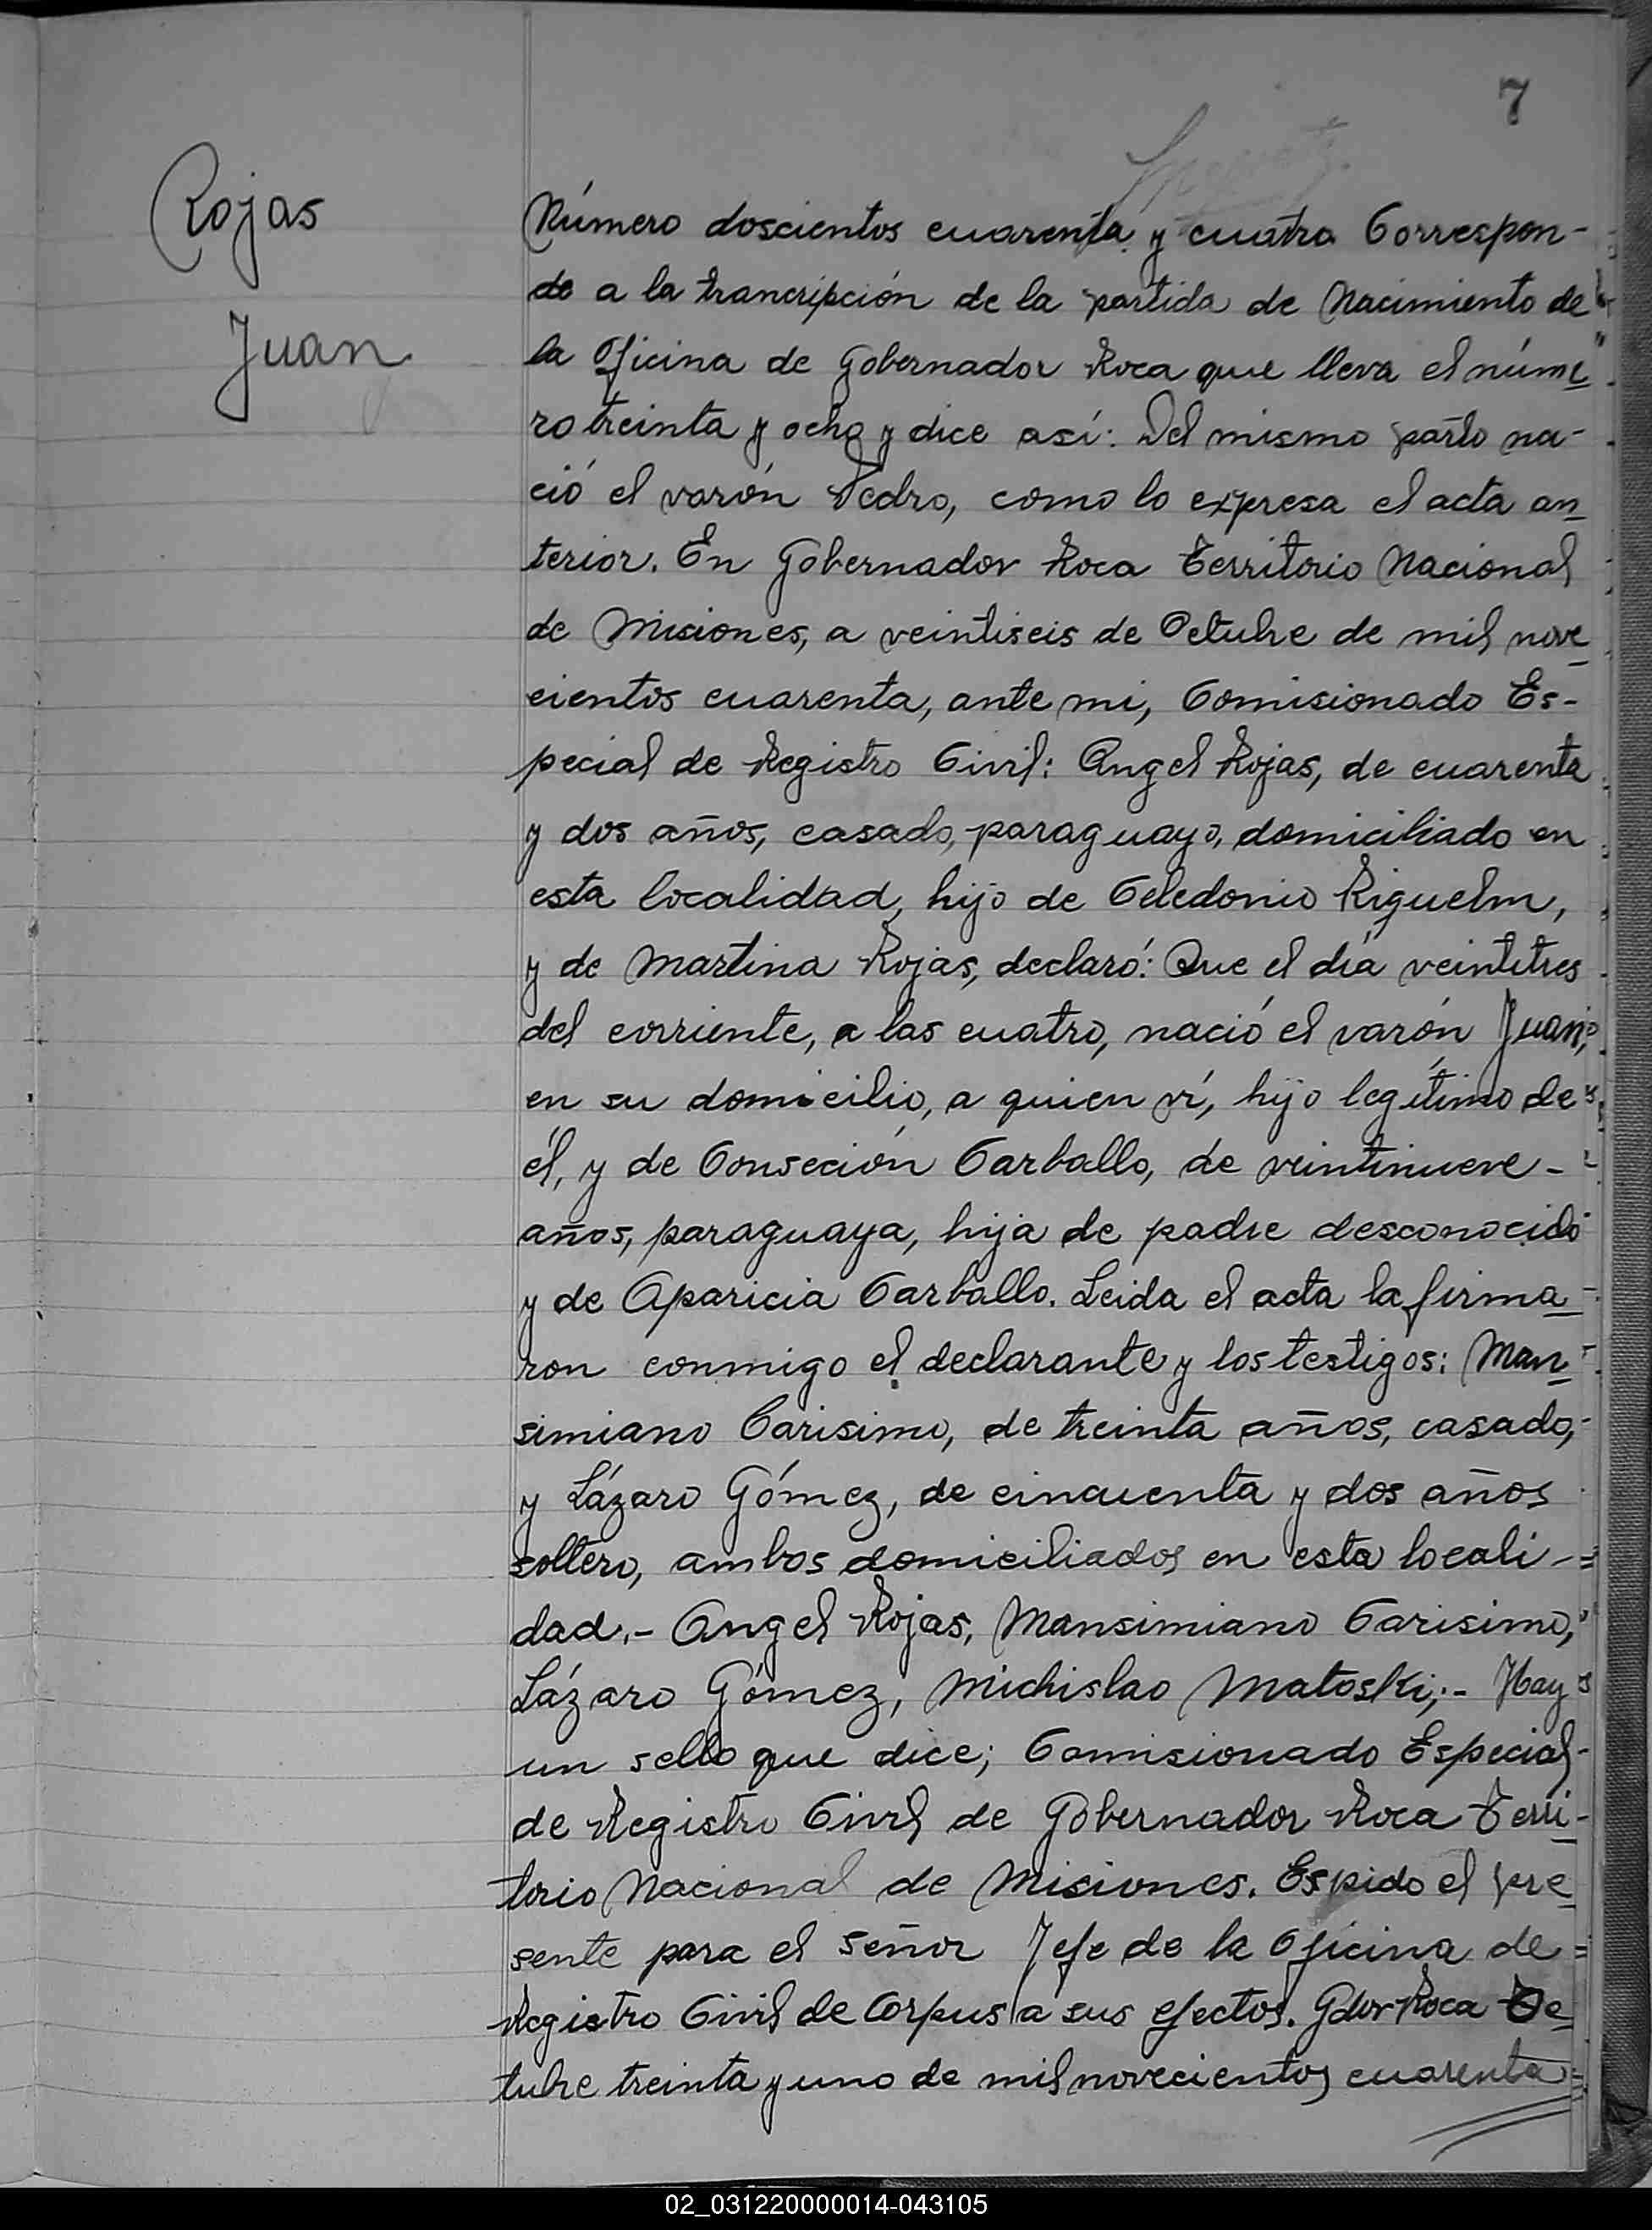 7
Rojas
Juan
Número doscientos cuarenta y cuatro Correspon-
de a la trancripción de la partida de Nacimiento de
la Oficina de Gobernador Roca que lleva el núme
ro treinta y ocho y dice así: Del mismo parto na-
ció el varón Pedro, como lo expresa el acta an
terior. En Gobernador Roca Territorio Nacional
de Misiones, a veintiseis de Octubre de mil nove
cientos cuarenta, ante mi, Comisionado Es-
pecial de Registro Civil: Angel Rojas, de cuarenta
y dos años, casado, paraguayo, domiciliado en
esta localidad, hijo de Celedonio Riguelm,
y de Martina Rojas, declaró: Que el día veintitres
del corriente, a las cuatro, nació el varón Juan,
en su domicilio, a quien ví, hijo legítimo de
él, y de Conseción Carballo, de veintinueve-
años, paraguaya, hija de padre desconocido
y de Aparicia Carballo. Leida el acta la firma
ron conmigo el declarante y los testigos: Man
simiano Carisimo, de treinta años, casado,
y Lázaro Gómez, de cincuenta y dos años
soltero, ambos domiciliados en esta locali-
dad.- Angel Rojas, Mansimiano Carisimo,
Lázaro Gómez, Michislao Matoski;- Hay
un sello que dice; Comisionado Especial
de Registro Civil de Gobernador Roca Terri-
torio Nacional de Misiones. Espido el pre
sente para el señor Jefe de la Oficina de
Registro Civil de Corpus a sus efectos. Gdor Roca Oc
tubre treinta y uno de mil novecientos cuarenta
02_031220000014-043105